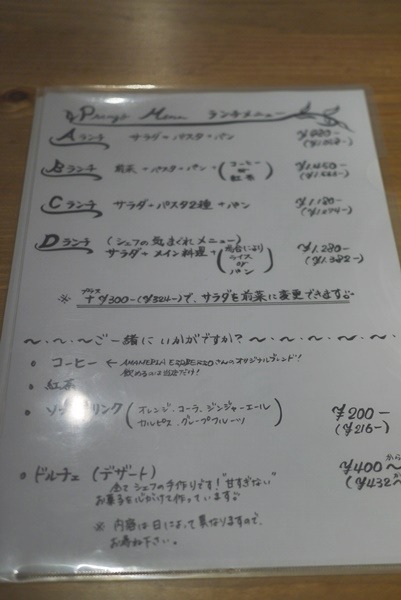 Pranzo Menu ランチメニュー
Aランチ サラダ+パスタ+パン
Bランチ 前菜+パスタ+パン+(コーヒー or 紅茶) ¥1.450-
Cランチ サラダ+パスタ2種+パン ¥1.180-
Dランチ (シェフの気まぐれメニュー) ¥1.280-
サラダ+メイン料理+(場合により ライス or パン) (¥1.382-)
※ プラス +¥300-(¥324-)で、サラダを前菜に変更できます。
〜・〜・〜ご一緒にいかがですか?〜・〜・〜・〜
• コーヒー ← さんのオリジナルブレンド!
飲めるのは当店だけ!
• 紅茶
• ソフトドリンク (オレンジ、コーラ、ジンジャーエール ¥200-
カルピス、グレープフルーツ) (¥216-)
• ドルチェ (デザート) ¥400から〜
全てシェフの手作りです!"甘すぎない" (¥432〜
お菓子を心がけて作っています。
※ 内容は日によって異なりますので、
お尋ね下さい。